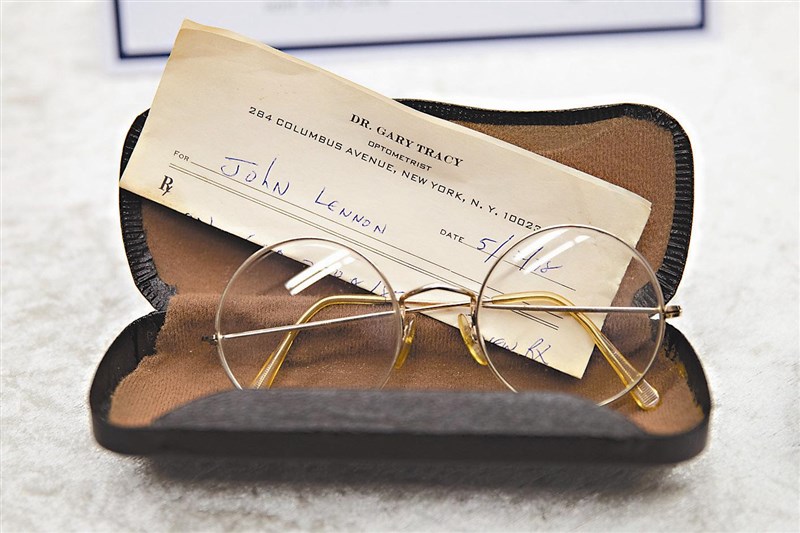 DR. GARY TRACY
OPTOMETRIST
284 COLUMBUS AVENUE, NEW YORK, N. Y. 10023
FOR JOHN LENNON
DATE 5/
℞
RX